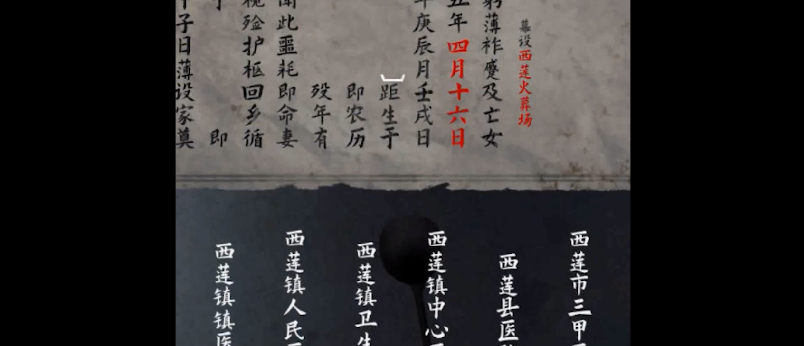 幕设西莲火葬场
薄祚蹙及亡女
年四月十六日
庚辰月壬戌日
距生于
即农历
殁年有
闻此噩耗即命妻
殓护柩回乡循
即
子日薄设家奠
西莲市三甲
西莲县医
西莲镇中心
西莲镇卫生
西莲镇人民
西莲镇镇医